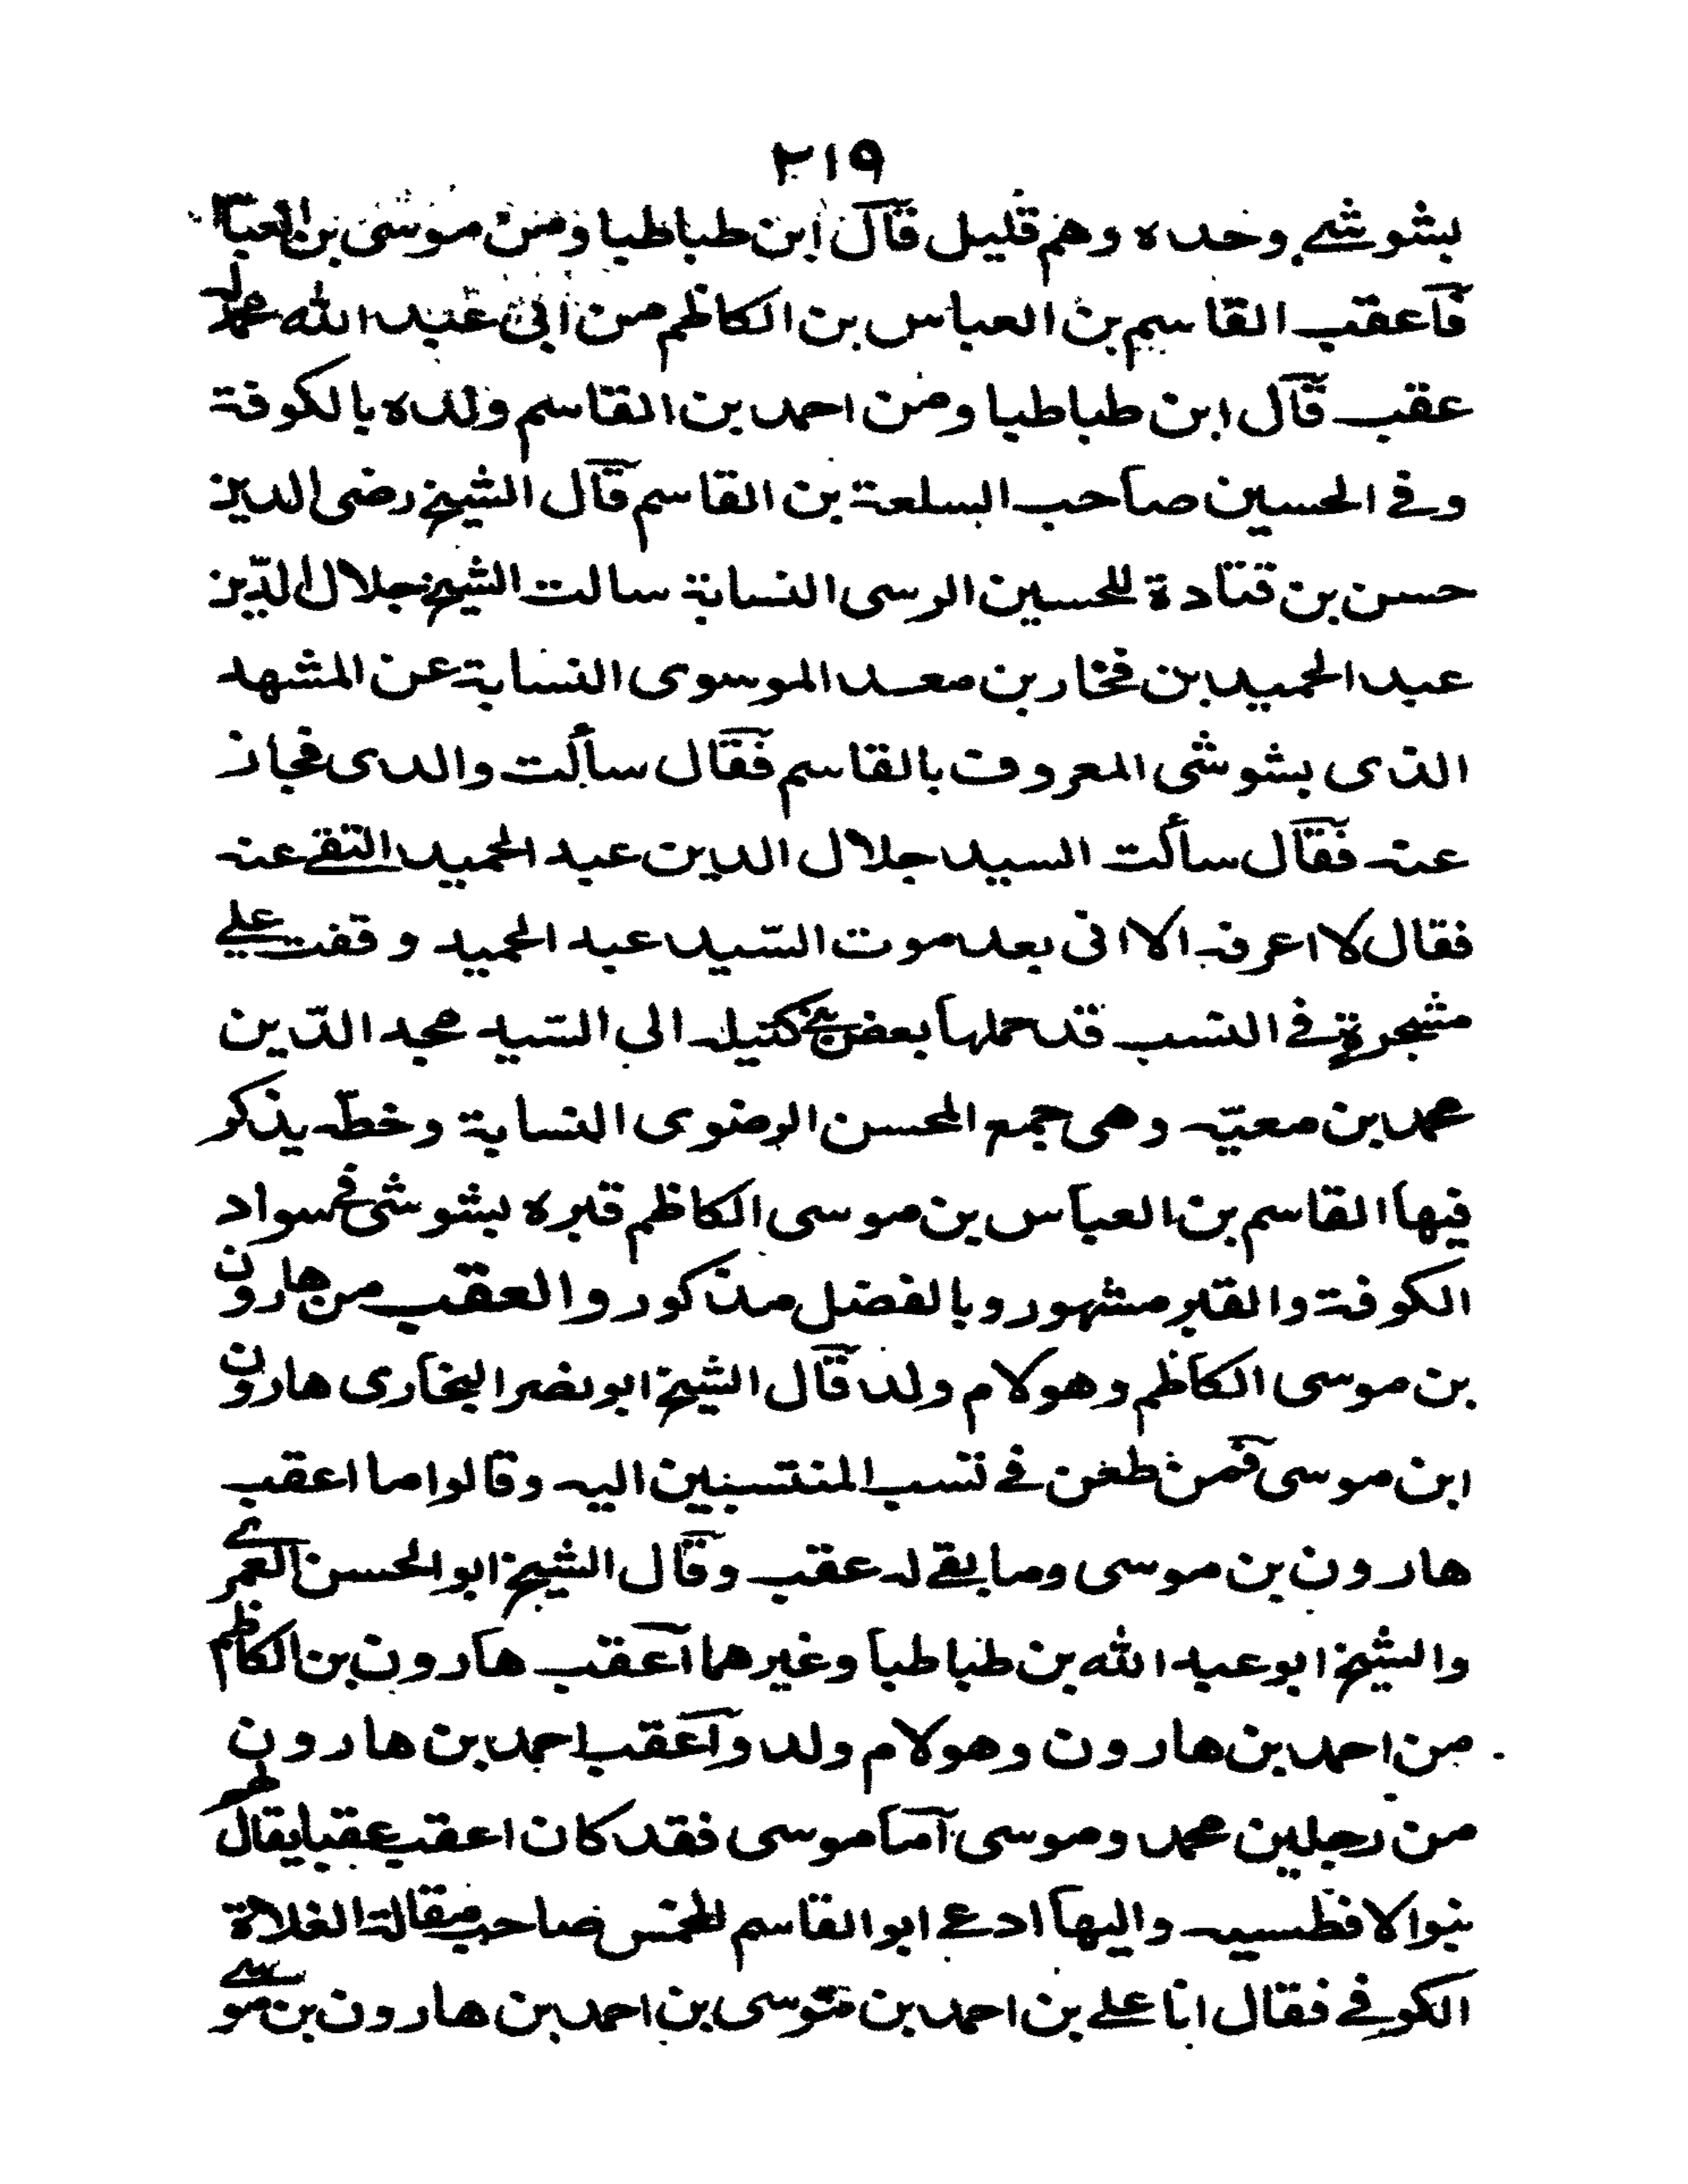 ٢١٩
بشوشى وحده وهم قليل قال ابن طباطبا ومن موسى بن العباس
فاعقب القاسم بن العباس بن الكاظم من ابى عبد الله محمد له
عقب قال ابن طباطبا ومن احمد بن القاسم ولده بالكوفة
وفى الحسين صاحب السلعة بن القاسم قال الشيخ رضى الدين
حسن بن قتادة للحسين الرسى النسابة سالت الشيخ جلال الدّين
عبد الحميد بن فخار بن معد الموسوى النسابة عن المشهد
الذى بشوشى المعروف بالقاسم فقال سألت والدى فخار
عنه فقال سألت السيد جلال الدين عبد الحميد التقى عنه
فقال لا اعرفه الا انى بعد موت السّيد عبد الحميد وقفت على
مشجرة فى النسب قد حملها بعض بنى كتيله الى السّيد مجد الدّين
محمد بن معيّه وهى جمع المحسن الرضوى النسابة وخطّه يذكر
فيها القاسم بن العباس بن موسى الكاظم قبره بشوشى فى سواد
الكوفة والقبر مشهور وبالفضل مذكور والعقب من هارون
بن موسى الكاظم وهو لام ولد قال الشيخ ابو نصر البخارى هارون
ابن موسى فمن طعن فى نسب المنتسبين اليه وقالوا ما اعقب
هارون بن موسى وما بقى له عقب وقال الشيخ ابو الحسن العمرى
والشيخ ابو عبد الله بن طباطبا وغيرهما اعقب هارون بن الكاظم
من احمد بن هارون وهو لام ولد واعقب احمد بن هارون
من رجلين محمد وموسى اما موسى فقد كان اعقب عقبا يقال لهم
بنو الافطسيه واليها ادعى ابو القاسم المخمس صاحب مقالة الغلاة
الكوفى فقال انا على بن احمد بن موسى بن احمد بن هارون بن موسى